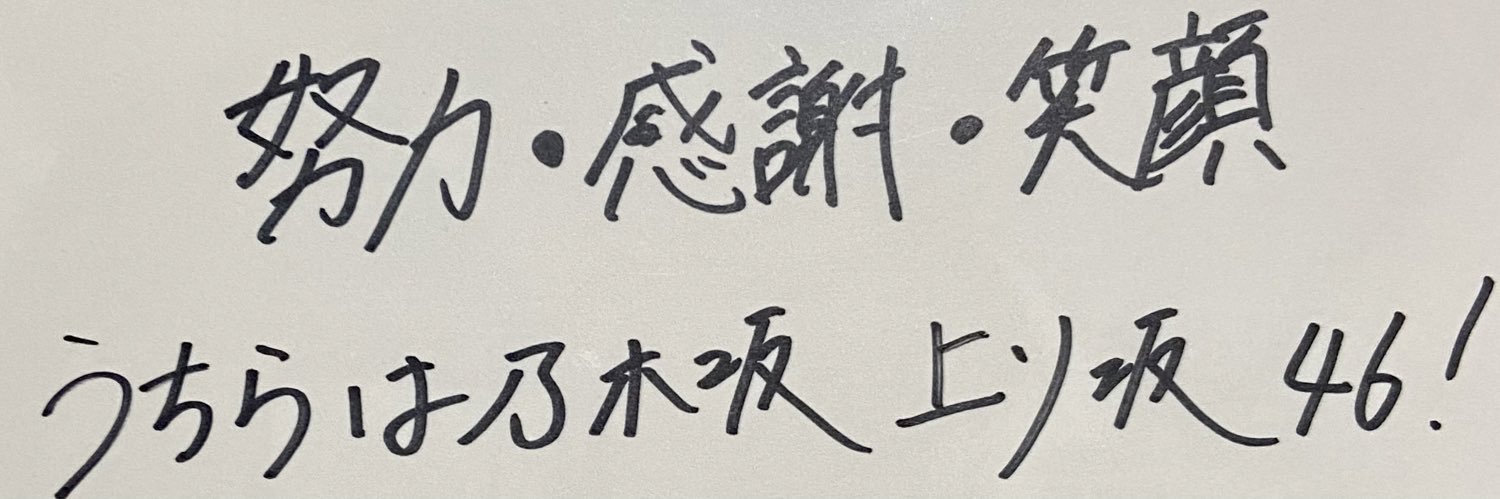 努力・感謝・笑顔
うちらは乃木坂 上り坂 46!